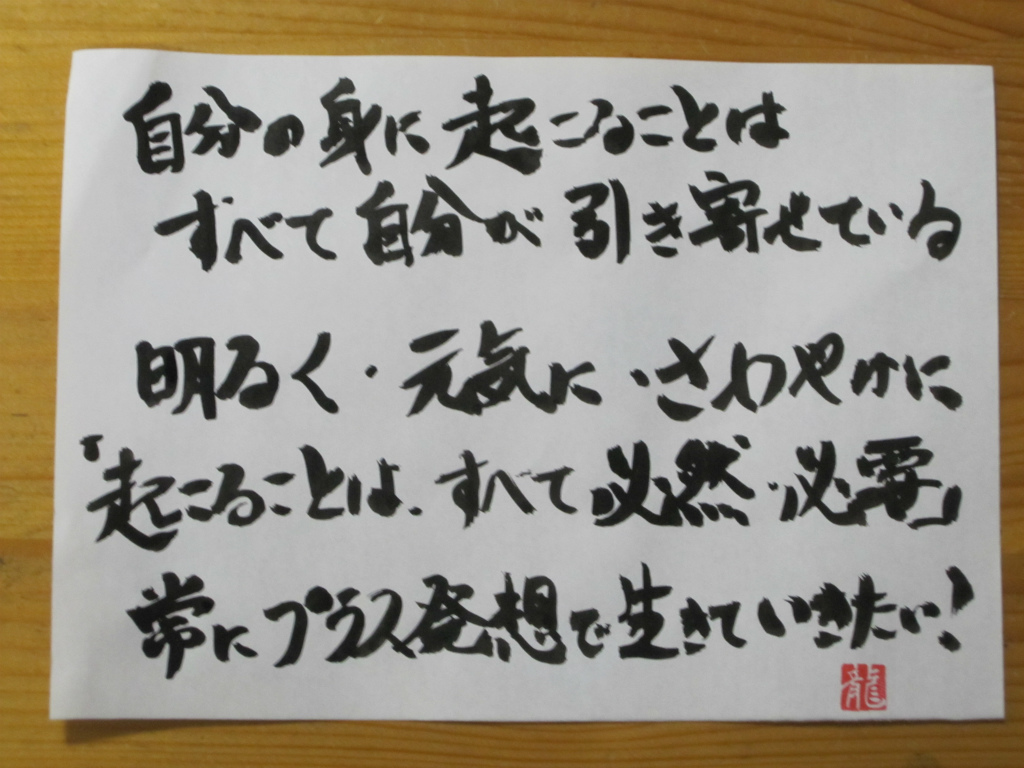 自分の身に起こることは
すべて自分が引き寄せている
明るく・元気に・さわやかに
「起こることは、すべて必然・必要」
常にプラス発想で生きていきたい!
龍